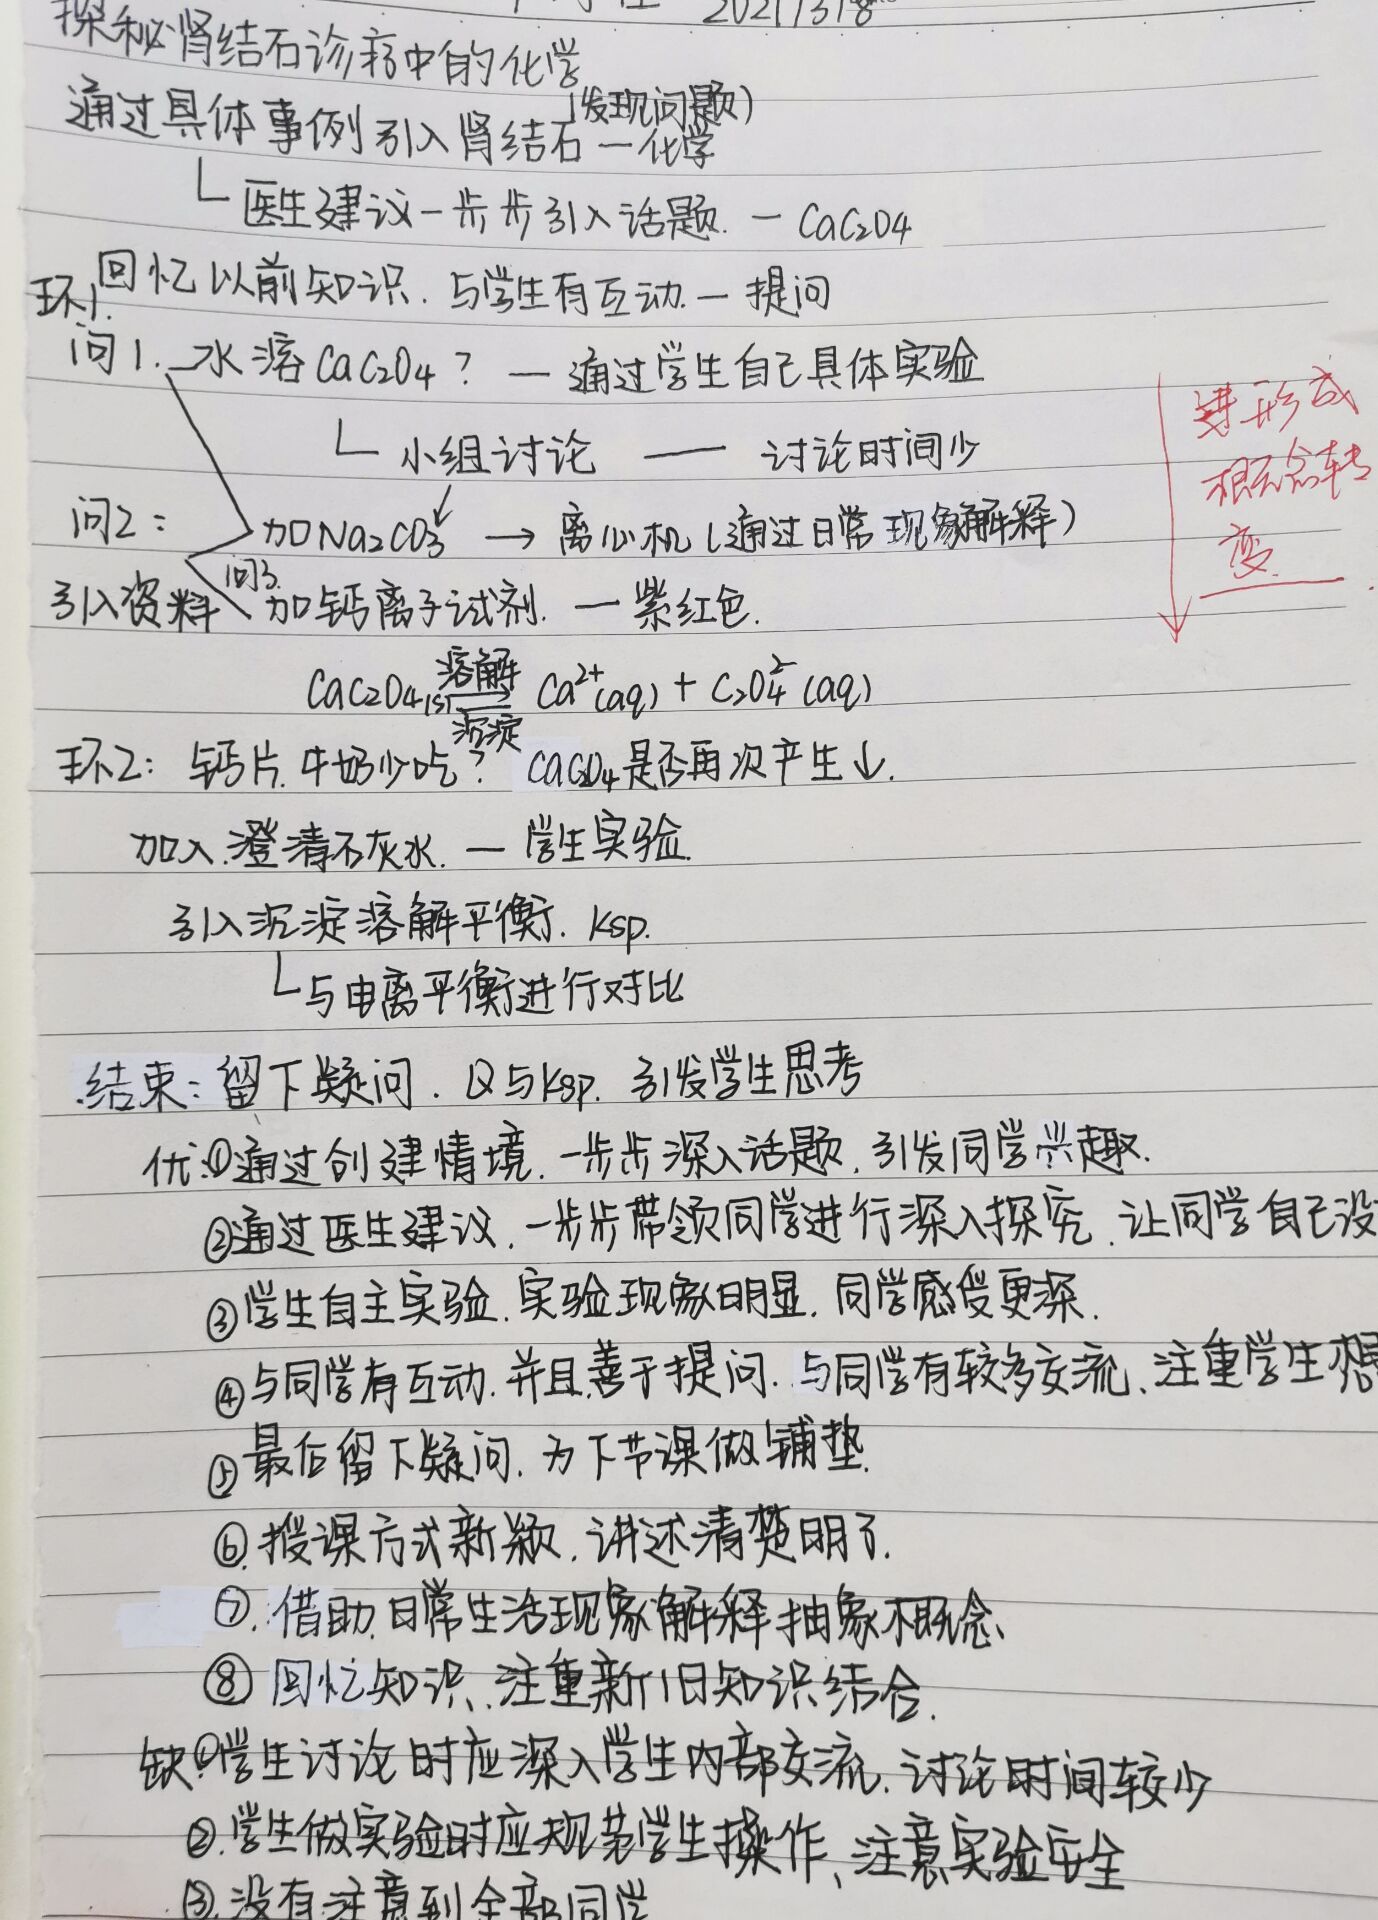 2021/3/8
探秘肾结石诊疗中的化学
(发现问题)
通过具体事例引入肾结石一化学
医生建议一步步引入话题. — CaC2O4
环1. 回忆以前知识. 与学生有互动. — 提问
问1. 水溶CaC2O4? — 通过学生自己具体实验
小组讨论 —— 讨论时间少
问2: 加Na2CO3 → 离心机(通过日常现象解释)
问3.
引入资料 加钙离子试剂. — 紫红色.
CaC2O4(s) 溶解⇌沉淀 Ca²⁺(aq) + C2O4²⁻(aq)
形成
概念转
变.
环2: 钙片.牛奶少吃? CaC2O4是否再次产生↓.
加入.澄清石灰水. — 学生实验.
引入沉淀溶解平衡. Ksp.
与电离平衡进行对比
结束: 留下疑问. Q与Ksp. 引发学生思考
优:①通过创建情境.一步步深入话题,引发同学兴趣.
②通过医生建议.一步步带领同学进行深入探究.让同学自己设
③学生自主实验.实验现象明显.同学感受更深.
④与同学有互动.并且善于提问.与同学有较多交流、注重学生想
⑤最后留下疑问.为下节课做铺垫.
⑥.授课方式新颖.讲述清楚明了.
⑦.借助.日常生活现象解释抽象概念、
⑧回忆知识、注重新旧知识结合.
缺:①学生讨论时应深入学生内部交流.讨论时间较少
②.学生做实验时应规范学生操作、注意实验安全
③.没有注意到全部同学